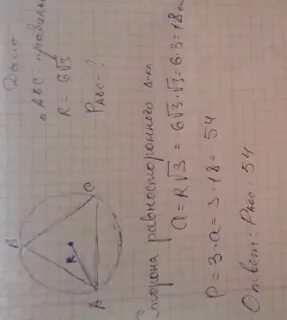 Дано
△ ABC - правильн
R = 6√3
P_ABC - ?
B
C
R
A
сторона равностороннего △-ка
a = R√3 = 6√3·√3 = 6·3 = 18
P = 3·a = 3·18 = 54
Ответ: P_ABC = 54